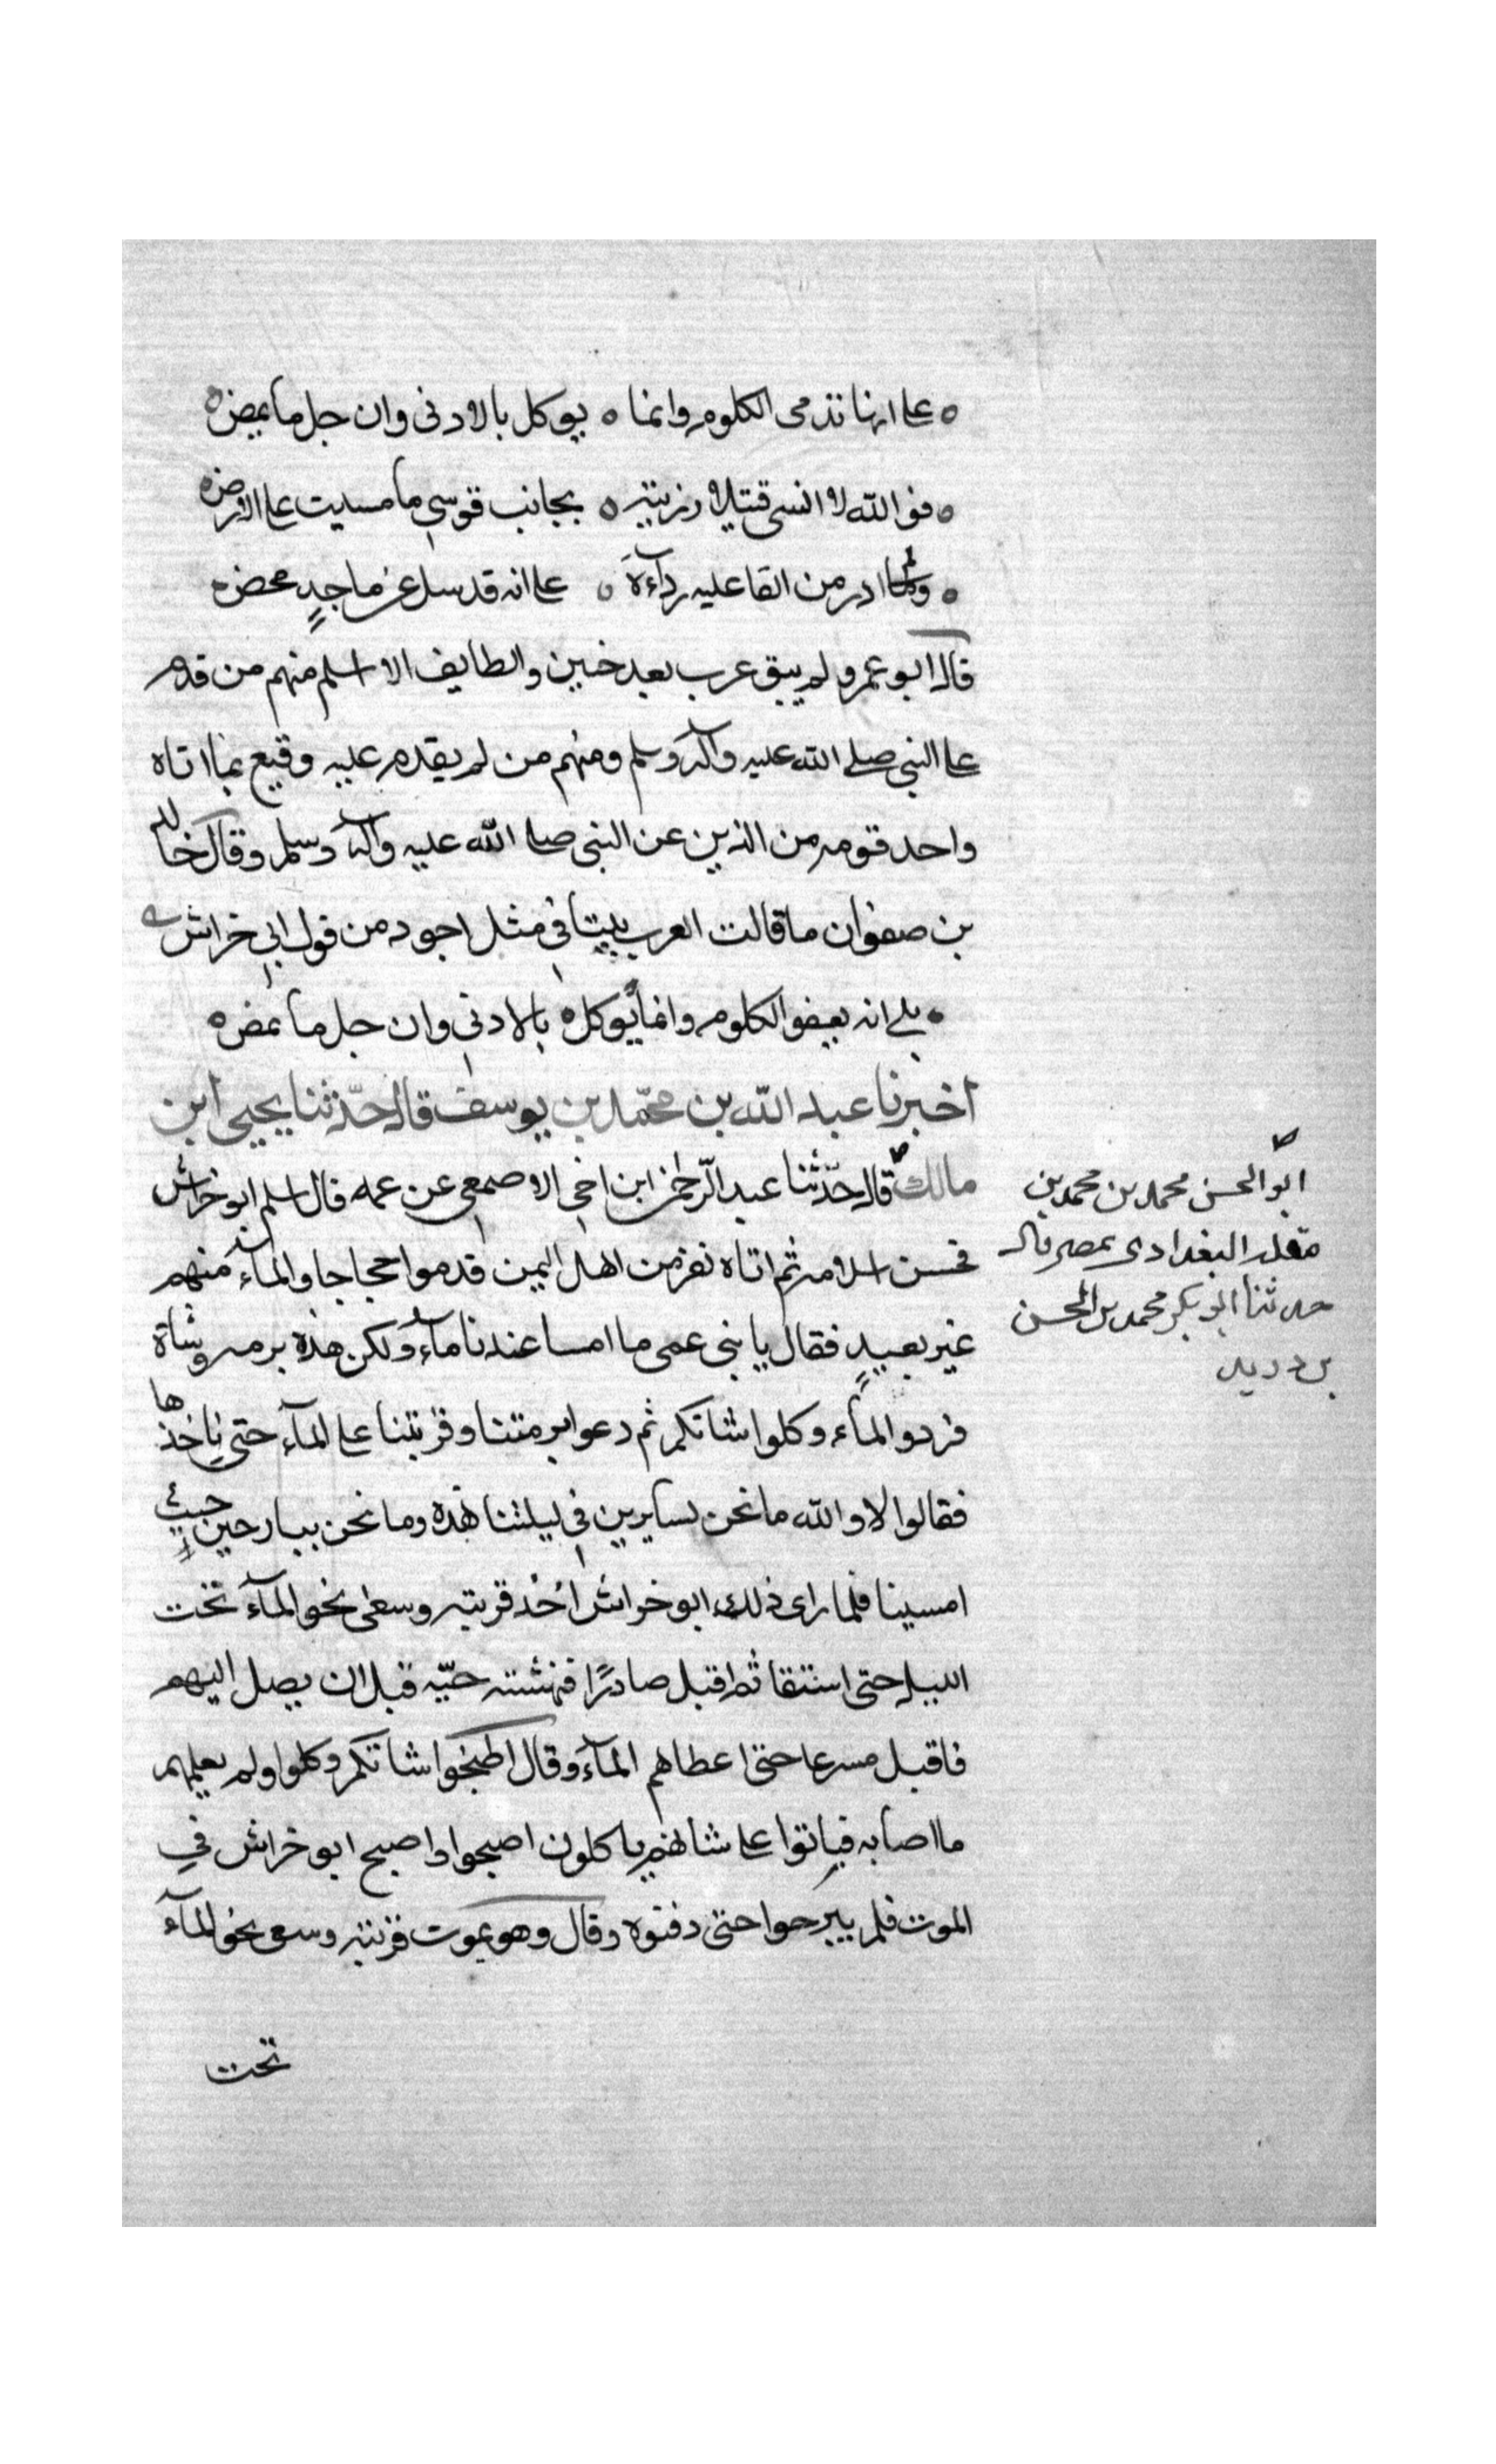 ه على انها تدمى الكلوم وانما ه يوكل بالادنى وان جل ما يمض ه
ه فوالله لا انسى قتيلا رزيته ه بجانب قوسى ما مسيت على الارض ه
ه ولم ادر من القا عليه رداءه ه على انه قد سل عن ماجدٍ محض ه
قال ابو عمر ولم يبق عرب بعد حنين والطايف الا اسلم منهم من قدم
على النبى صلى الله عليه وآله وسلم ومنهم من لم يقدم عليه وقنع بما اتاه
واحد قومه من الذين عن النبى صلى الله عليه وآله وسلم وقال خالد
بن صفوان ما قالت العرب بيتا فى مثل اجود من قول ابى خراش
ه بلى انه بعفو الكلوم وانما يوكل ه بالادنى وان جل ما يمض ه
اخبرنا عبد الله بن محمّد بن يوسف قال حدّثنا يحيى ابن
مالك قال حدّثنا عبد الرّحمن ابن اخى الاصمعى عن عمه قال اسلم ابو خراش
ابو الحسن محمد بن محمد بن
مقلد البغدادى بمصر قال
حدثنا ابو بكر محمد بن الحسن
بن دريد
فحسن اسلامه ثم اتاه نفر من اهل اليمن قدموا حجاجا والماء منهم
غير بعيدٍ فقال يا بنى عمى ما امسا عندنا ماء ولكن هذه برمه وشاة
فردوا الماء وكلوا شاتكم ثم دعوا برمتنا وقربتنا على الماء حتى ناخذها
فقالوا لا والله ما نحن بسايرين فى ليلتنا هذه وما نحن ببارحين حيث
امسينا فلما راى ذلك ابو خراش اخذ قربته وسعى نحو الماء تحت
الليل حتى استقا ثم اقبل صادرًا فنهشته حيّه قبل ان يصل اليهم
فاقبل مسرعا حتى اعطاهم الماء وقال اطبخوا شاتكم وكلوا ولم يعلمهم
ما اصابه فباتوا على شاتهم ياكلون اصبحوا واصبح ابو خراش فى
الموت فلم يبرحوا حتى دفنوه وقال وهو يموت قربته وسعى نحو الماء
تحت